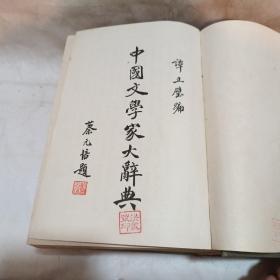 譚正璧編
中國文學家大辭典
蔡元培題